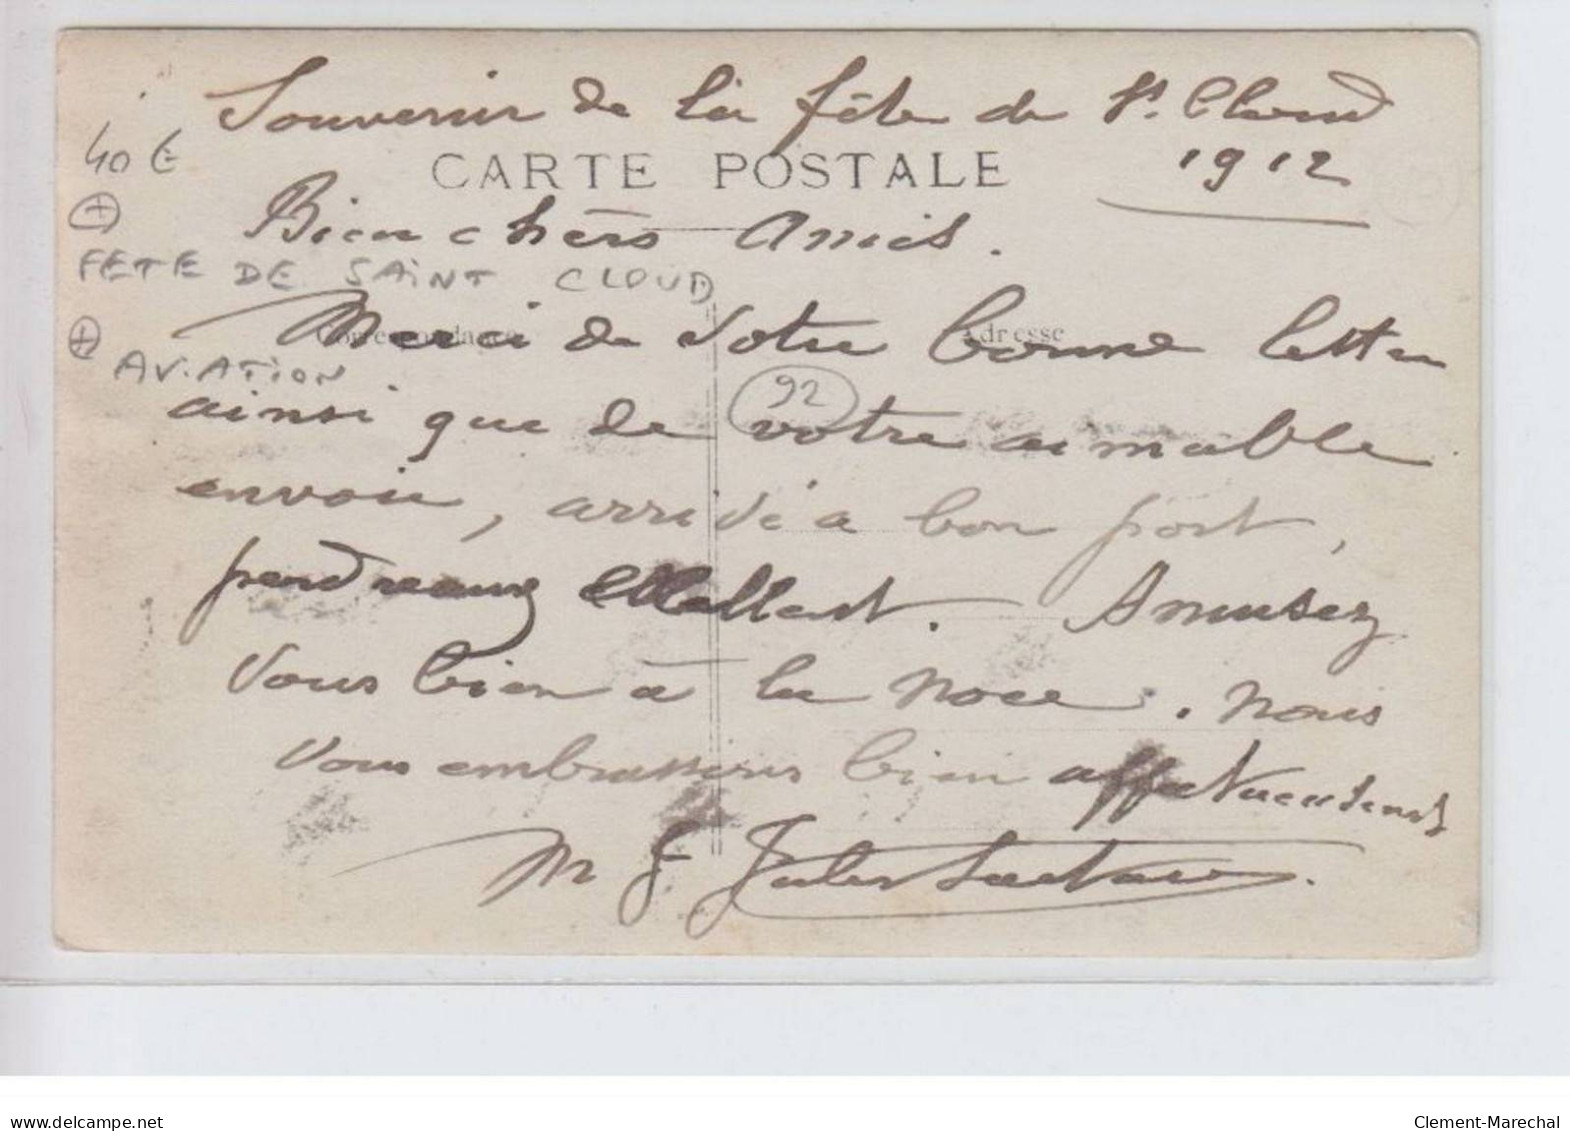 Souvenir de la fête de St. Cloud
1912
40 €
CARTE POSTALE
Bien chers Amis.
FETE DE SAINT CLOUD
Correspondance
Adresse
Merci de votre bonne lettre
AVIATION
92
ainsi que de votre aimable
envoie, arrivé a bon port,
perdreaux . Amusez
vous bien à la noce. nous
vous embrassons bien affectueusement
M J Jules
delcampe.net
Clement-Marechal